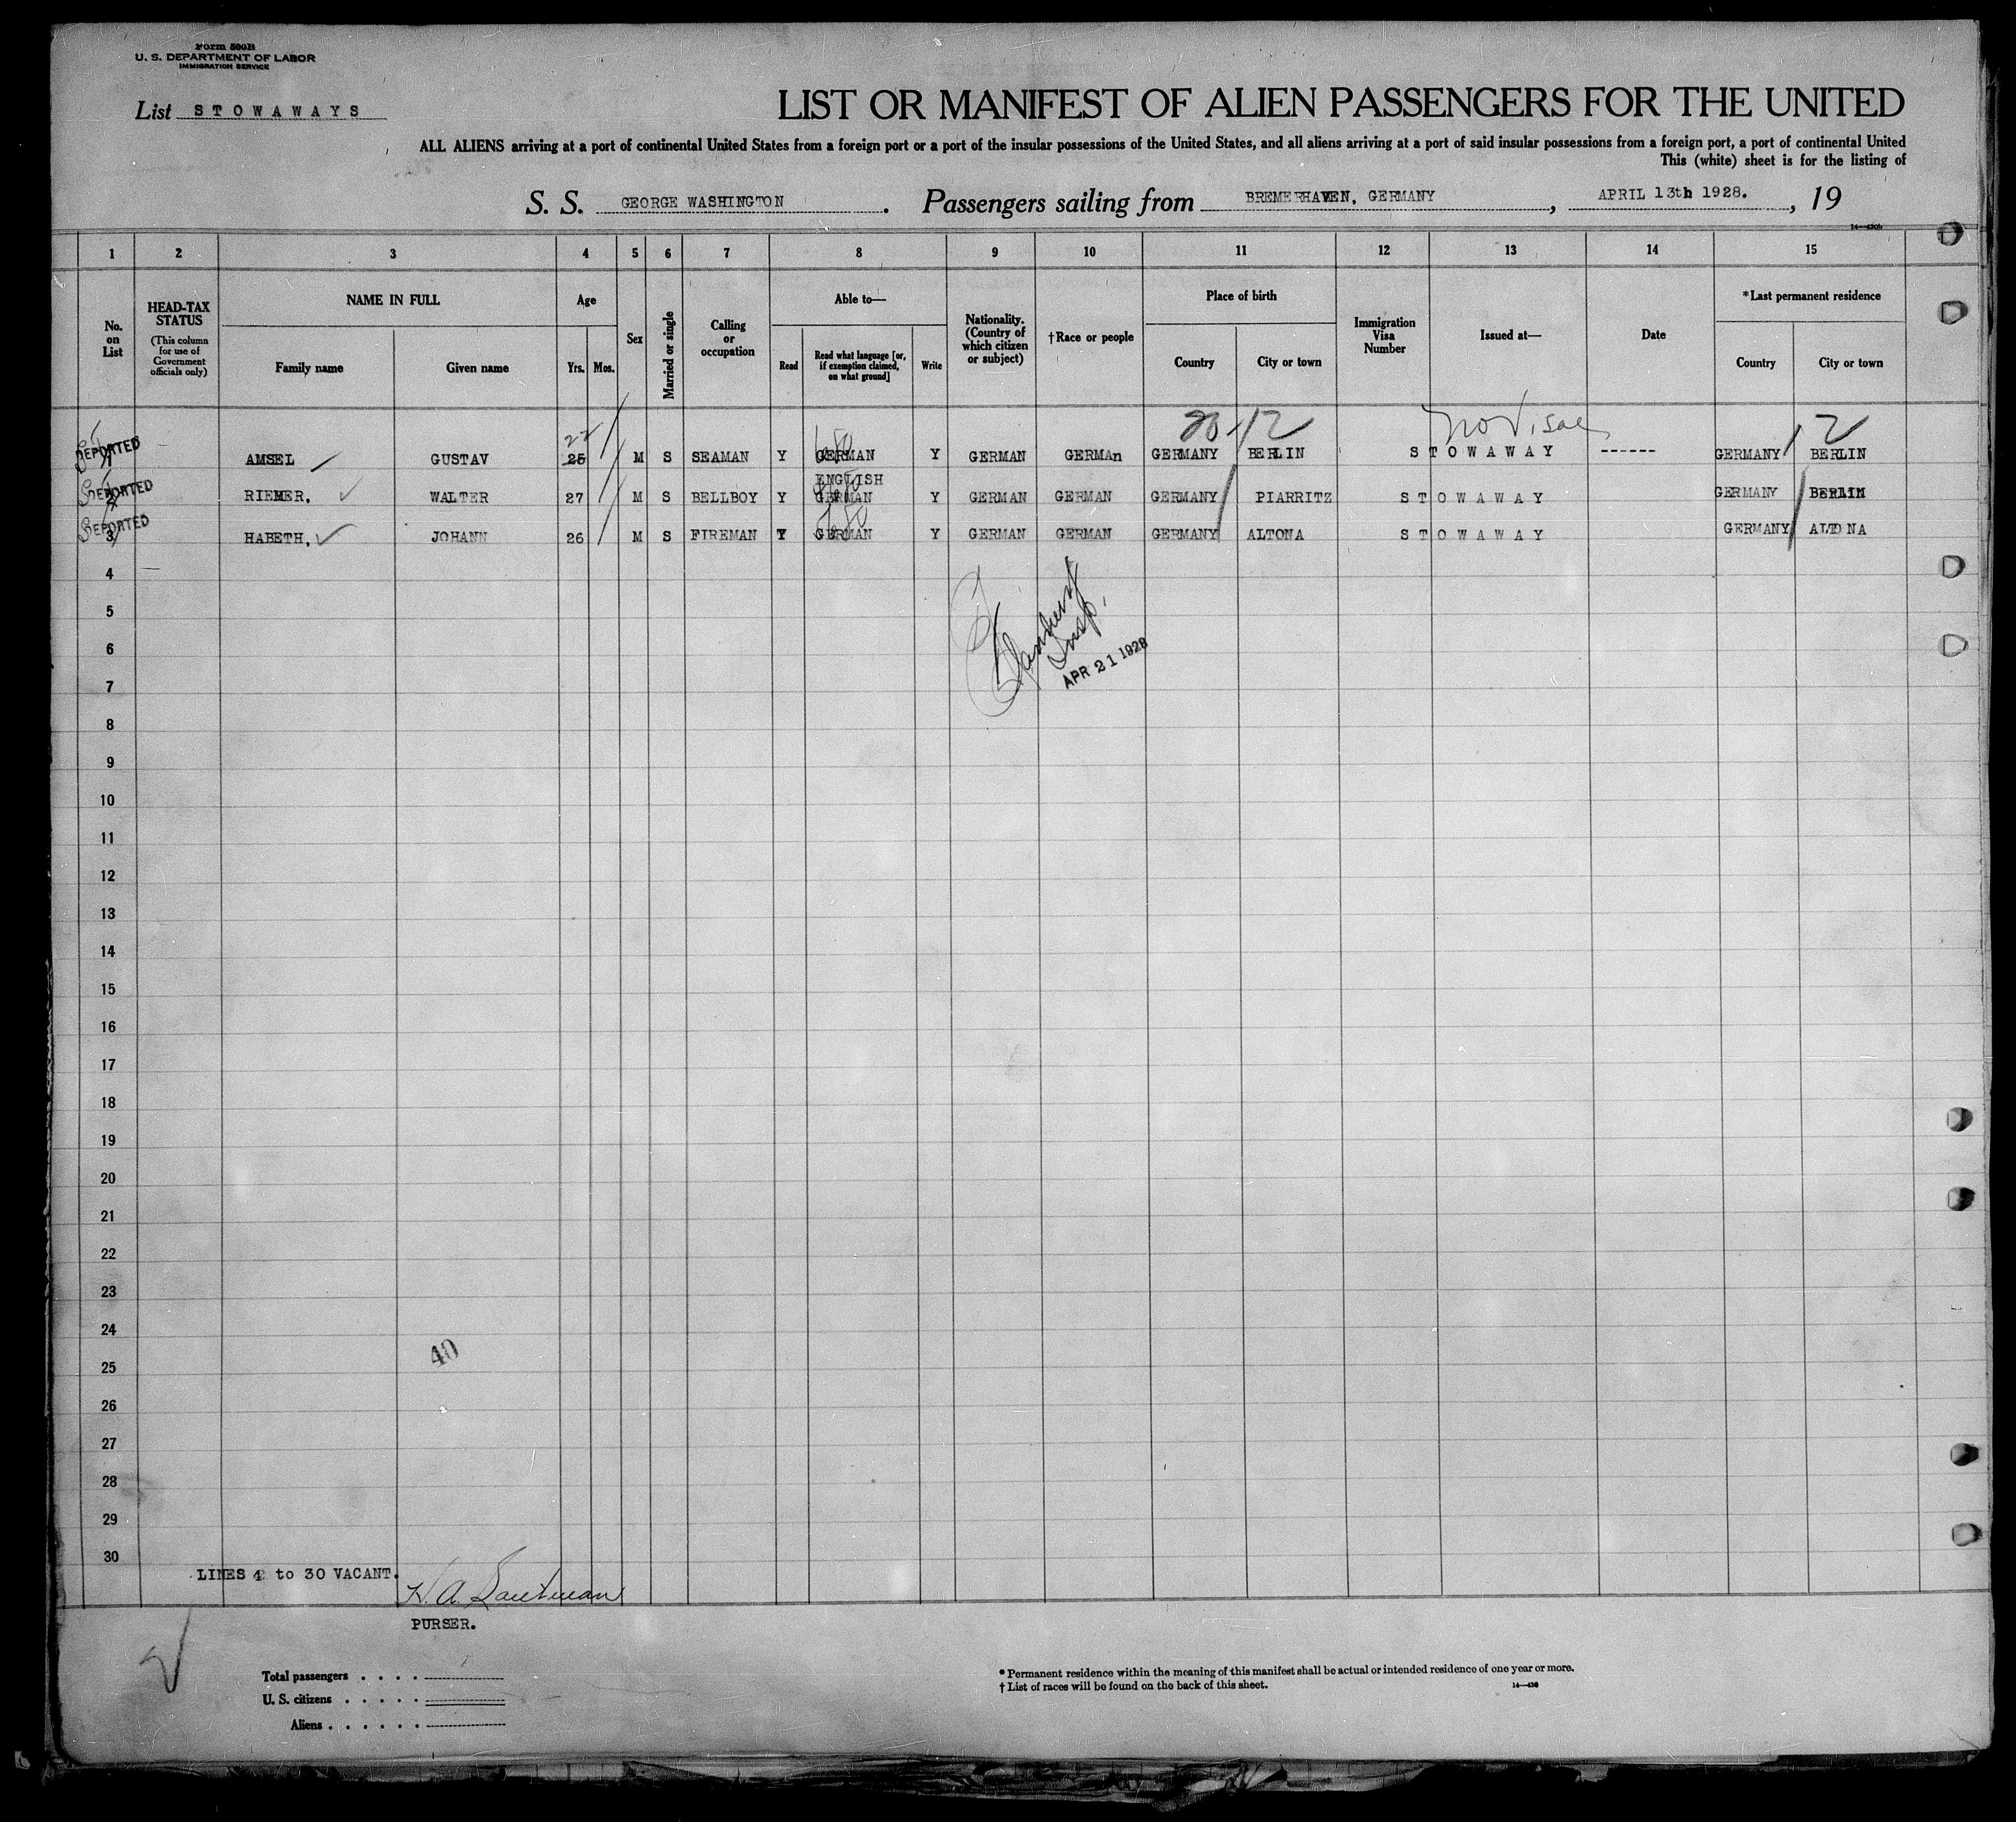 Form 500B
U. S. DEPARTMENT OF LABOR
IMMIGRATION SERVICE
List STOWAWAYS
LIST OR MANIFEST OF ALIEN PASSENGERS FOR THE UNITED
ALL ALIENS arriving at a port of continental United States from a foreign port or a port of the insular possessions of the United States, and all aliens arriving at a port of said insular possessions from a foreign port, a port of continental United
This (white) sheet is for the listing of
S. S. GEORGE WASHINGTON. Passengers sailing from BREMERHAVEN, GERMANY, APRIL 13th 1928., 19
14—430b
1 2 3 4 5 6 7 8 9 10 11 12 13 14 15
No. on List
HEAD-TAX STATUS (This column for use of Government officials only)
NAME IN FULL
Family name
Given name
Age
Yrs. Mos.
Sex
Married or single
Calling or occupation
Able to—
Read
Read what language [or, if exemption claimed, on what ground]
Write
Nationality. (Country of which citizen or subject)
†Race or people
Place of birth
Country
City or town
Immigration Visa Number
Issued at—
Date
*Last permanent residence
Country
City or town
20-12 no Visae 2
22
DEPORTED 1 AMSEL GUSTAV 25 M S SEAMAN Y GERMAN Y GERMAN GERMAn GERMANY BERLIN STOWAWAY ------ GERMANY BERLIN
ENGLISH
DEPORTED 2 RIEMER, WALTER 27 M S BELLBOY Y GERMAN Y GERMAN GERMAN GERMANY PIARRITZ STOWAWAY GERMANY BERLIN
DEPORTED 3 HABETH, JOHANN 26 M S FIREMAN Y GERMAN Y GERMAN GERMAN GERMANY ALTONA STOWAWAY GERMANY ALTONA
4
5
Insp.
6
APR 21 1928
7
8
9
10
11
12
13
14
15
16
17
18
19
20
21
22
23
24
40
25
26
27
28
29
30
LINES 4 to 30 VACANT.
H. A.
PURSER.
Total passengers
U. S. citizens
Aliens
* Permanent residence within the meaning of this manifest shall be actual or intended residence of one year or more.
† List of races will be found on the back of this sheet.
14—430